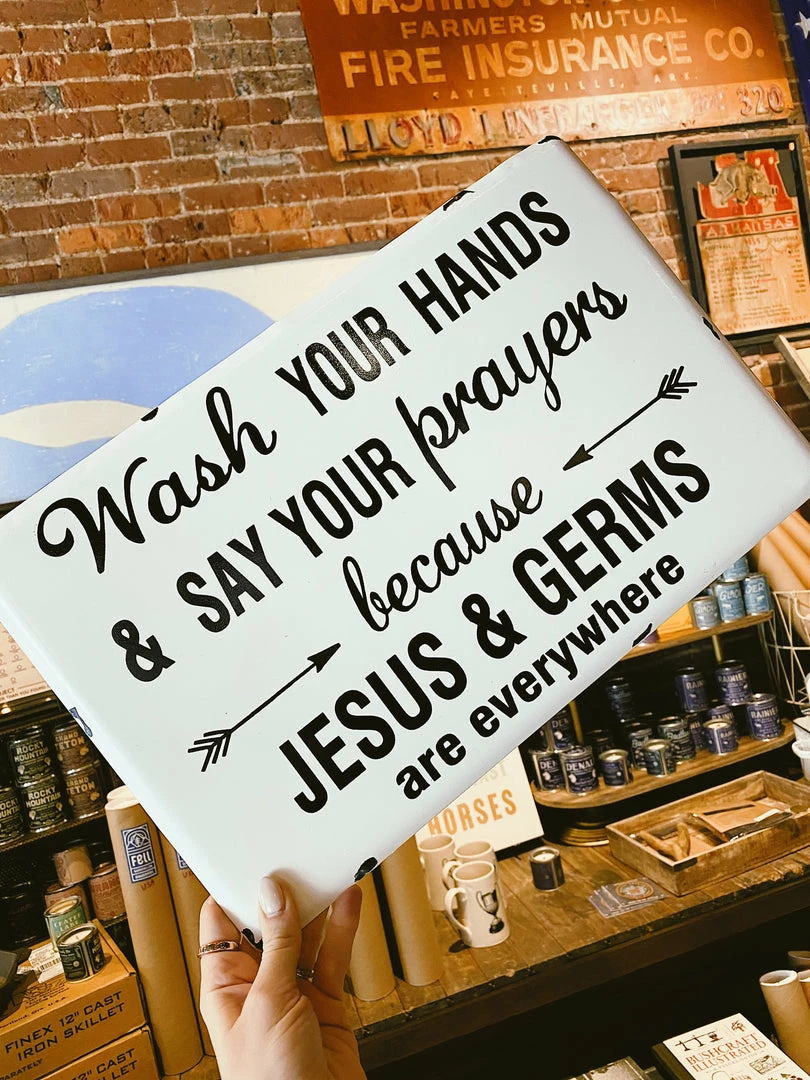 WASHINGTON
FARMERS MUTUAL
FIRE INSURANCE CO.
FAYETTEVILLE, ARK.
LLOYD
320
ARKANSAS
Wash YOUR HANDS
& SAY YOUR prayers
because
JESUS & GERMS
are everywhere
HORSES
ROCKY
MOUNTAIN
GRAND
TETON
ROCKY
MOUNTAIN
fell
USA
RAINIER
RAINIER
RAINIER
DENALI
FINEX 12" CAST
IRON SKILLET
12" CAST
SKILLET
BUSHCRAFT
ILLUSTRATED